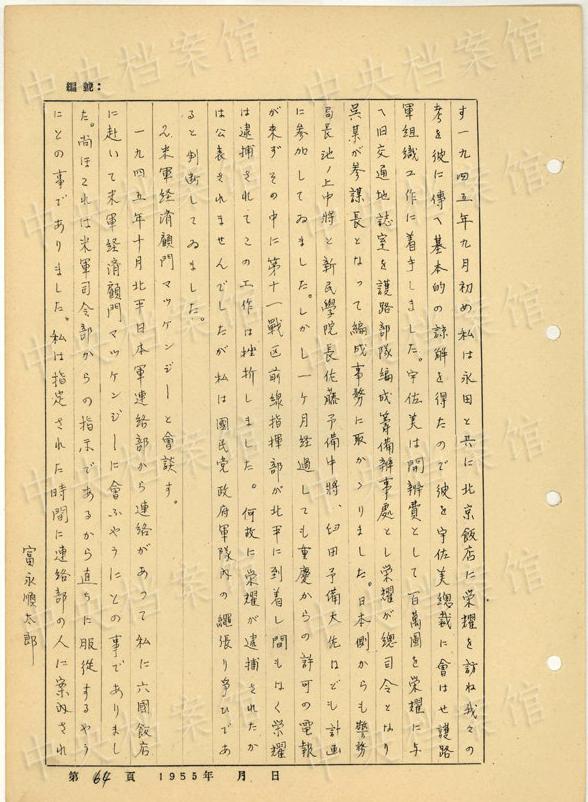 編號：
す一九四五年九月初め私は永田と共に北京飯店に栄耀を訪ね我々の
考を彼に傳へ基本的の諒解を得たので彼を宇佐美總裁に會はせ護路
軍組織工作に着手しました。宇佐美は開辦費として百萬圓を栄耀に与
へ旧交通地誌室を護路部隊編成籌備辦事處とし栄耀が總司令となり
呉某が参謀長となって編成事務に取かゝりました。日本側からも警務
局長池ノ上中將と新民學院長佐藤予備中將、臼田予備大佐なども計画
に参加してゐました。しかし一ヶ月経過しても重慶からの許可の電報
が来ずその中に第十一戦区前線指揮部が北平に到着し間もなく栄耀
は逮捕されてこの工作は挫折しました。何故に栄耀が逮捕されたか
は公表されませんでしたが私は國民党政府軍隊内の繩張り争ひであ
ると判断してゐました。
2、米軍経済顧問マッケンジーと會談す。
一九四五年十月北平日本軍連絡部から連絡があって私に六國飯店
に赴いて米軍経済顧問マッケンジーに會ふやうにとの事でありまし
た。尚ほこれは米軍司令部からの指示であるから直ちに服從するやう
にとの事でありました。私は指定された時間に連絡部の人に案内され
富永順太郎
第 64 頁 1955年 月 日
中央档案馆